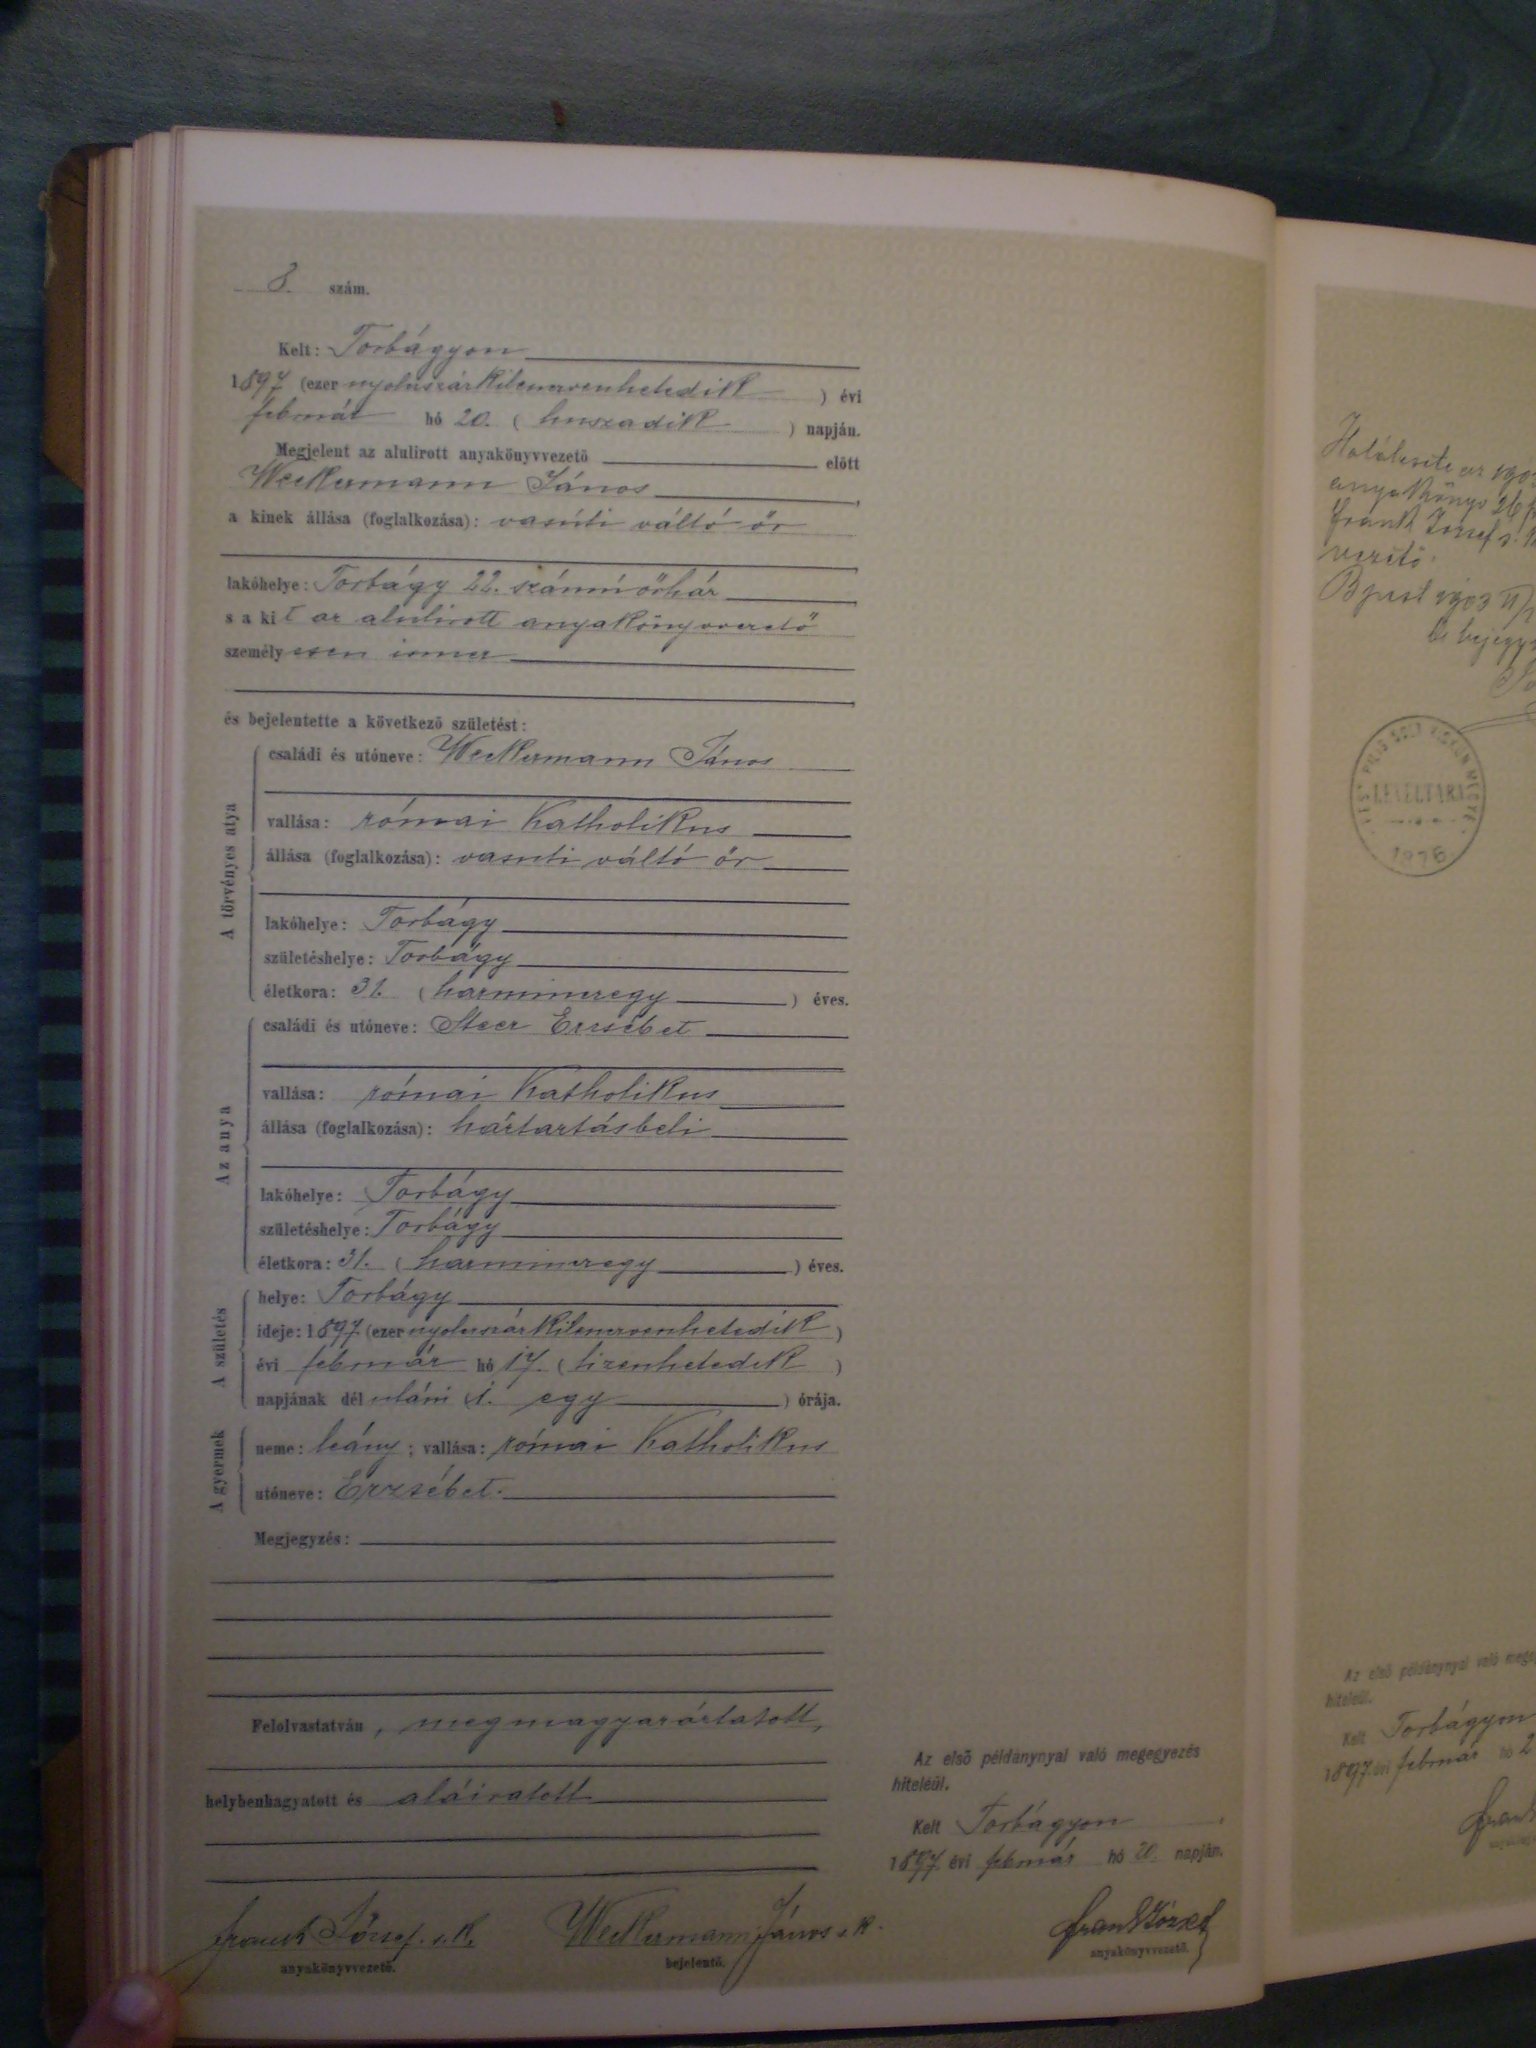 8. szám.
Kelt: Torbágyon
1897 (ezer nyolcszázkilencvenhetedik) évi
február hó 20. (huszadik) napján.
Megjelent az alulirott anyakönyvvezető előtt
Weckermann János,
a kinek állása (foglalkozása): vasúti váltó őr
lakóhelye: Torbágy 22. számú őrház
s a kit az alulirott anyakönyvvezető
személyesen ismer
és bejelentette a következő születést:
A törvényes atya
családi és utóneve: Weckermann János
vallása: római katholikus
állása (foglalkozása): vasuti váltó őr
lakóhelye: Torbágy
születéshelye: Torbágy
életkora: 31. (harmincegy) éves.
Az anya
családi és utóneve: Steer Erzsébet
vallása: római katholikus
állása (foglalkozása): háztartásbeli
lakóhelye: Torbágy
születéshelye: Torbágy
életkora: 31. (harmincegy) éves.
A születés
helye: Torbágy
ideje: 1897 (ezer nyolcszázkilencvenhetedik)
évi február hó 17. (tizenhetedik)
napjának dél utáni (1. egy) órája.
A gyermek
neme: leány; vallása: római katholikus
utóneve: Erzsébet.
Megjegyzés:
Felolvastatván, megmagyaráztatott,
helybenhagyatott és aláiratott
Frank József s. k.
anyakönyvvezető.
Weckermann János s. k.
bejelentő.
Az első példánynyal való megegyezés
hiteléül.
Kelt Torbágyon,
1897. évi február hó 20. napján.
Frank József
anyakönyvvezető.
anyakönyv 26
Frank József s.
vezető.
Bpest 1903 II/
LEVÉLTÁRA
1976
Az első példánynyal való
hiteléül.
Kelt Torbágyon
1897. évi február hó 2
Frank